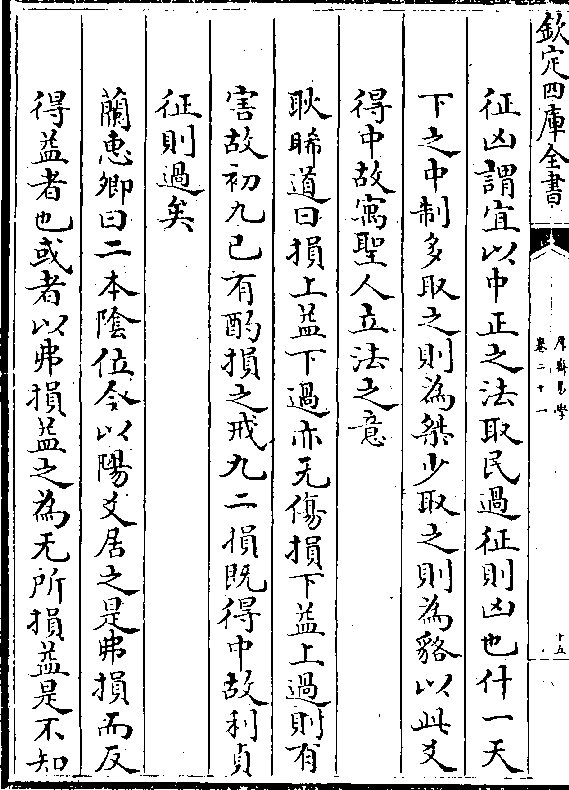 欽定四庫全書
厚齋易學
卷二十一
十五
征凶謂宜以中正之法取民過征則凶也什一天
下之中制多取之則為桀少取之則為貉以此爻
得中故寓聖人立法之意
耿睎道曰損上益下過亦无傷損下益上過則有
害故初九已有酌損之戒九二損既得中故利貞
征則過矣
蘭惠卿曰二本陰位今以陽爻居之是弗損而反
得益者也或者以弗損益之為无所損益是不知